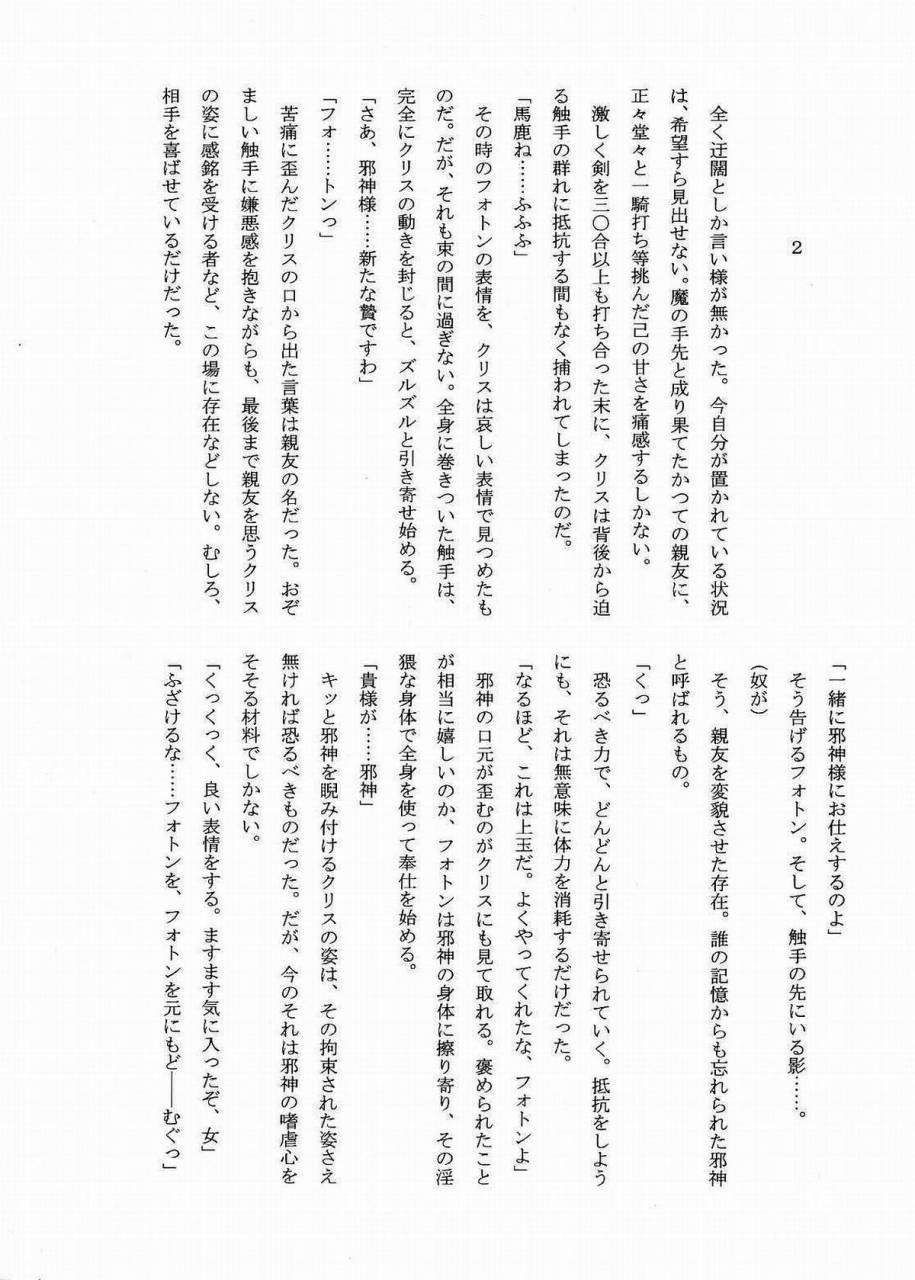 2
全く迂闊としか言い様が無かった。今自分が置かれている状況
は、希望すら見出せない。魔の手先と成り果てたかつての親友に、
正々堂々と一騎打ち等挑んだ己の甘さを痛感するしかない。
激しく剣を三〇合以上も打ち合った末に、クリスは背後から迫
る触手の群れに抵抗する間もなく捕われてしまったのだ。
「馬鹿ね……ふふふ」
その時のフォトンの表情を、クリスは哀しい表情で見つめたも
のだ。だが、それも束の間に過ぎない。全身に巻きついた触手は、
完全にクリスの動きを封じると、ズルズルと引き寄せ始める。
「さあ、邪神様……新たな贄ですわ」
「フォ……トンっ」
苦痛に歪んだクリスの口から出た言葉は親友の名だった。おぞ
ましい触手に嫌悪感を抱きながらも、最後まで親友を思うクリス
の姿に感銘を受ける者など、この場に存在などしない。むしろ、
相手を喜ばせているだけだった。
「一緒に邪神様にお仕えするのよ」
そう告げるフォトン。そして、触手の先にいる影……。
(奴が)
そう、親友を変貌させた存在。誰の記憶からも忘れられた邪神
と呼ばれるもの。
「くっ」
恐るべき力で、どんどんと引き寄せられていく。抵抗をしよう
にも、それは無意味に体力を消耗するだけだった。
「なるほど、これは上玉だ。よくやってくれたな、フォトンよ」
邪神の口元が歪むのがクリスにも見て取れる。褒められたこと
が相当に嬉しいのか、フォトンは邪神の身体に擦り寄り、その淫
猥な身体で全身を使って奉仕を始める。
「貴様が……邪神」
キッと邪神を睨み付けるクリスの姿は、その拘束された姿さえ
無ければ恐るべきものだった。だが、今のそれは邪神の嗜虐心を
そそる材料でしかない。
「くっくっく、良い表情をする。ますます気に入ったぞ、女」
「ふざけるな……フォトンを、フォトンを元にもど――むぐっ」